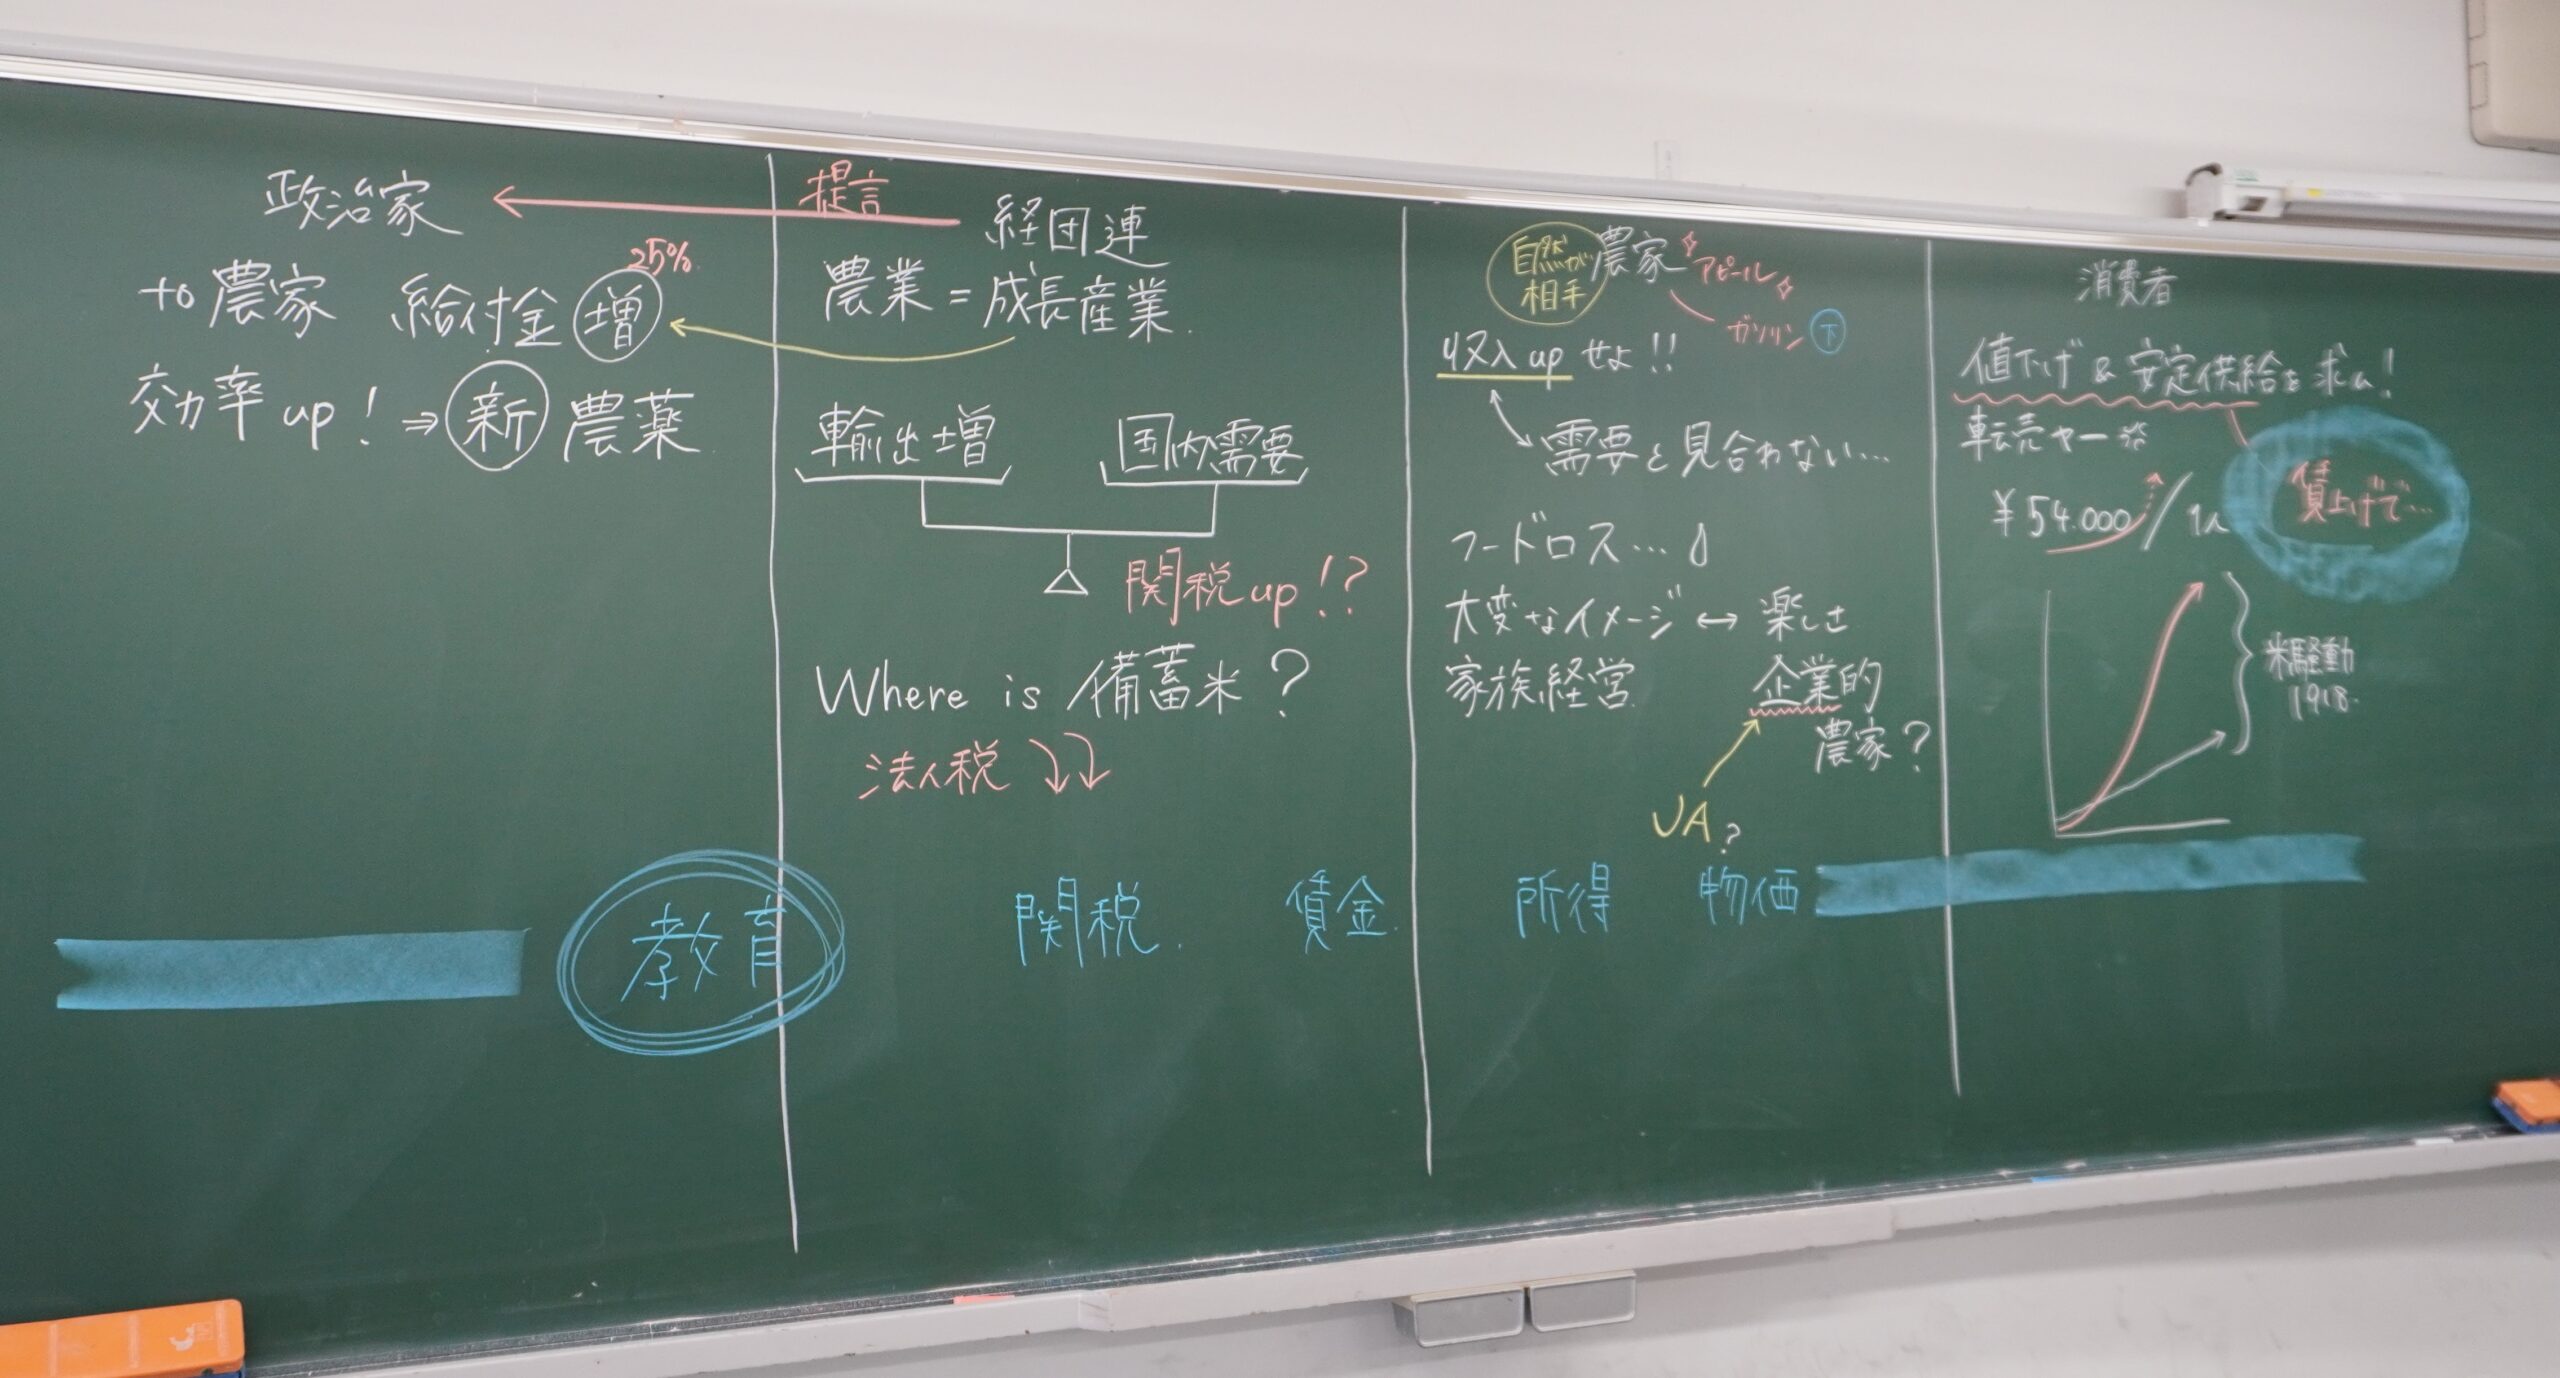 政治家
to農家 給付金増
25%
効率up!⇒新農薬
提言
経団連
農業=成長産業.
輸出増 国内需要
関税up!?
Where is 備蓄米?
法人税
自然が
相手
農家
アピール
ガソリン下
収入upせよ!!
需要と見合わない…
フードロス…
大変なイメージ↔楽しさ
家族経営 企業的
農家?
JA?
消費者
値下げ&安定供給を求ム!
転売ヤー
賃上げで…
¥54.000/1人
米騒動
1918.
教育 関税. 賃金. 所得 物価